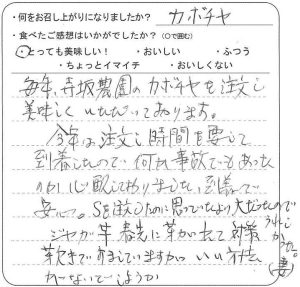 ・何をお召し上がりになりましたか？ カボチャ
・食べたご感想はいかがでしたか？（○で囲む）
・とっても美味しい！ ・おいしい ・ふつう
・ちょっとイマイチ ・おいしくない
毎年、寺坂農園のカボチャを注文し
美味しくいただいております。
今年は注文し時間を要して
到着したので何か事故でもあった
のか心配しておりました。到着で
安心。Sを注文したのに思っていたより大だったので
うれしかった。
ジャガ芋春先に芽が出て対策
芽欠きで
いい方法
ないでしょうか
(妻)